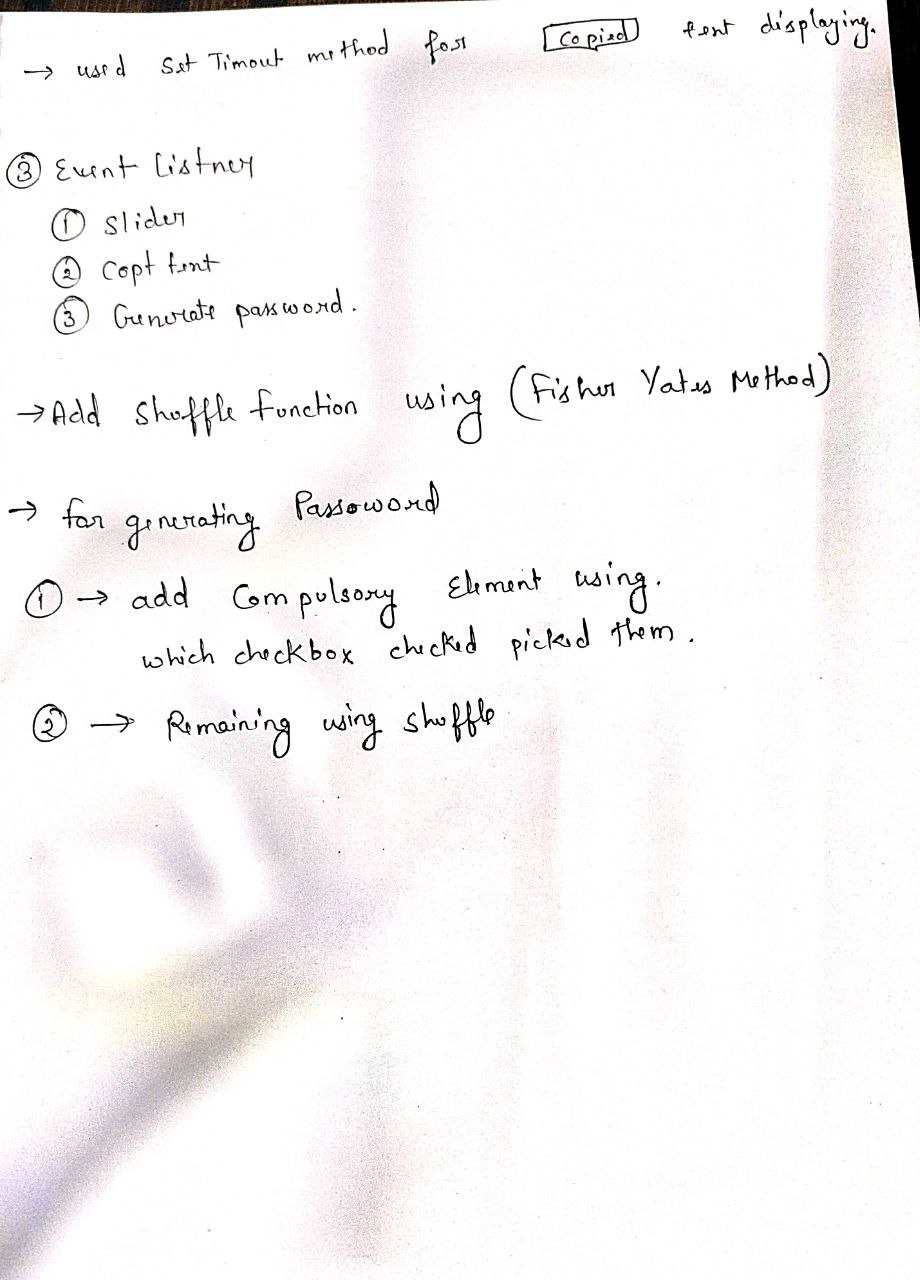 → used Set Timout method for Copied text displaying.
③ Event Listner
① Slider
② Copt text
③ Generate password.
→ Add Shuffle function using (Fisher Yates Method)
→ for generating Passoword
① → add Compulsory Element using.
which checkbox checked picked them.
② → Remaining using shuffle